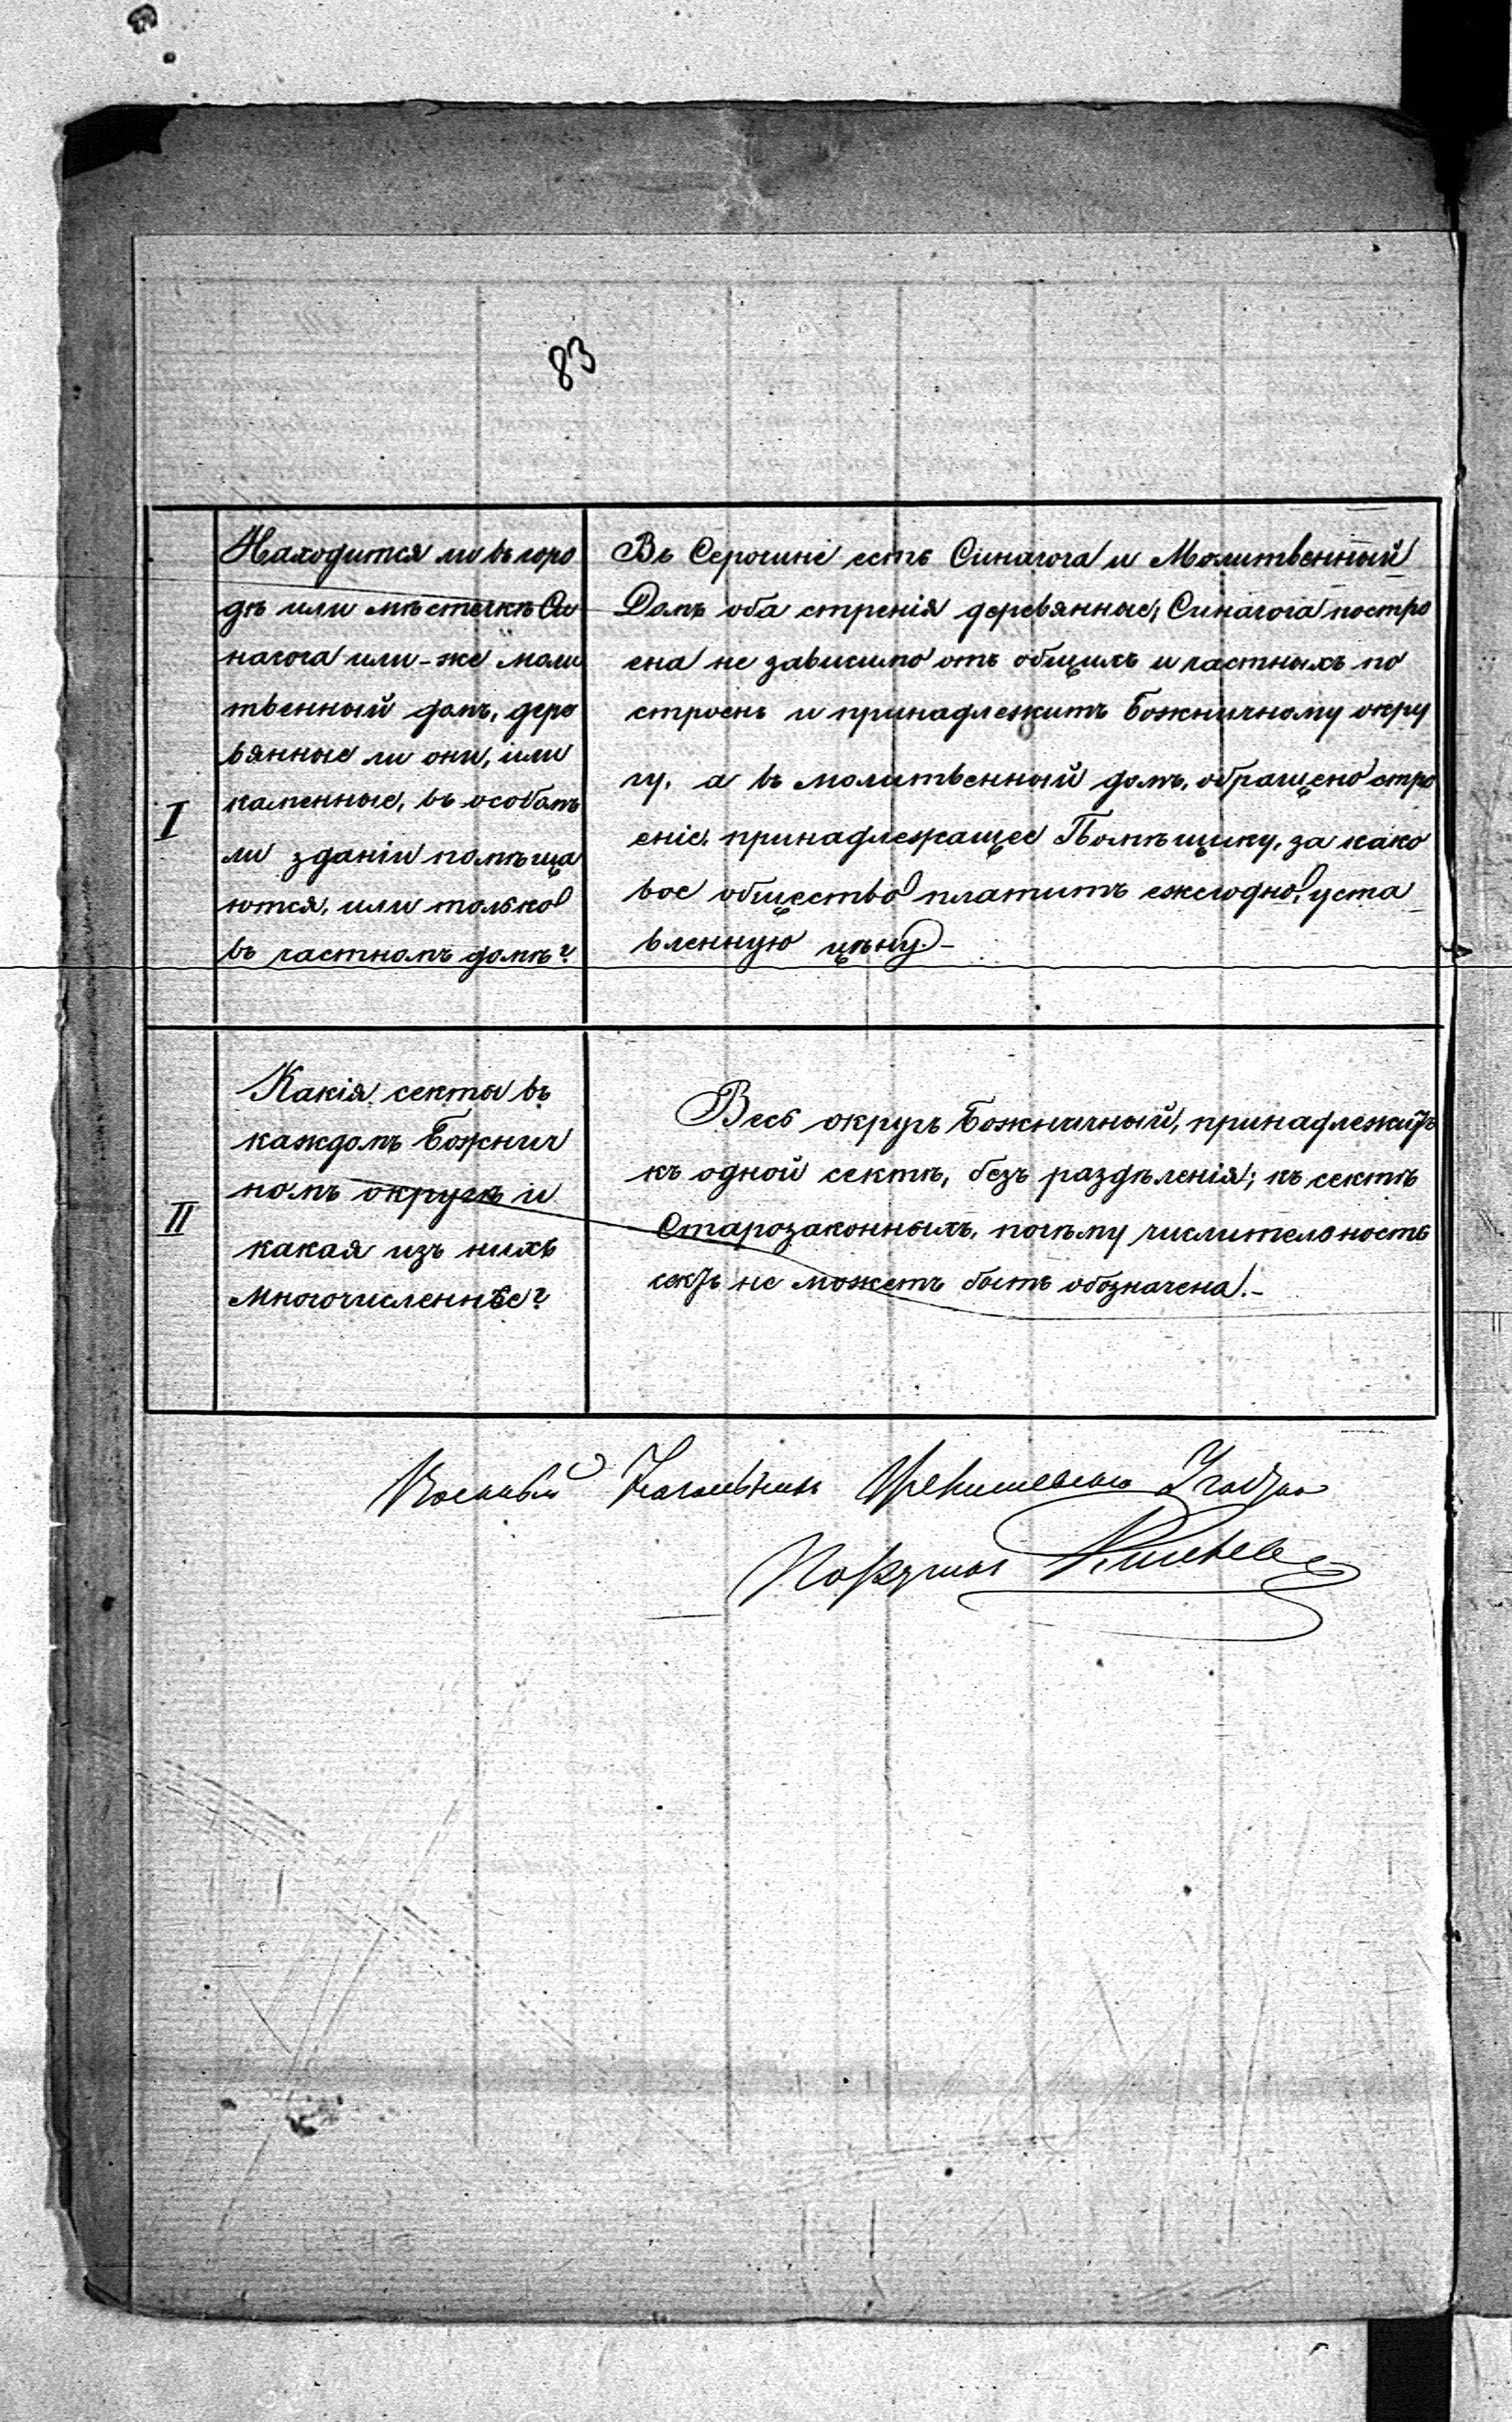 83
I
Находится ли въ горо
дѣ или мѣстечкѣ Си
нагога или-же моли
твенный домъ, дере
вянные ли они, или
каменные, въ особомъ
ли зданіи помѣща
ются, или только
въ частномъ домѣ?
Въ Серочинѣ есть Синагога и Молитвенный
Домъ оба стренія деревянные; Синагога постро
ена не зависимо отъ общихъ и частныхъ по
строекъ и принадлежитъ Божничному окру
гу, а въ молитвенный домъ, обращено стро
еніе, принадлежащее Помѣщику, за како
вое общество платитъ ежегодно, уста
вленную цѣну.-
II
Какія секты въ
каждомъ Божнич
номъ округѣ и
какая изъ нихъ
многочисленнѣе?
Весь округъ Божничный, принадлежитъ
къ одной сектѣ, безъ раздѣленія; къ сектѣ
Старозаконныхъ, почему числительность
сектъ не можетъ быть обозначена.-
Военный Начальникъ
Поручикъ